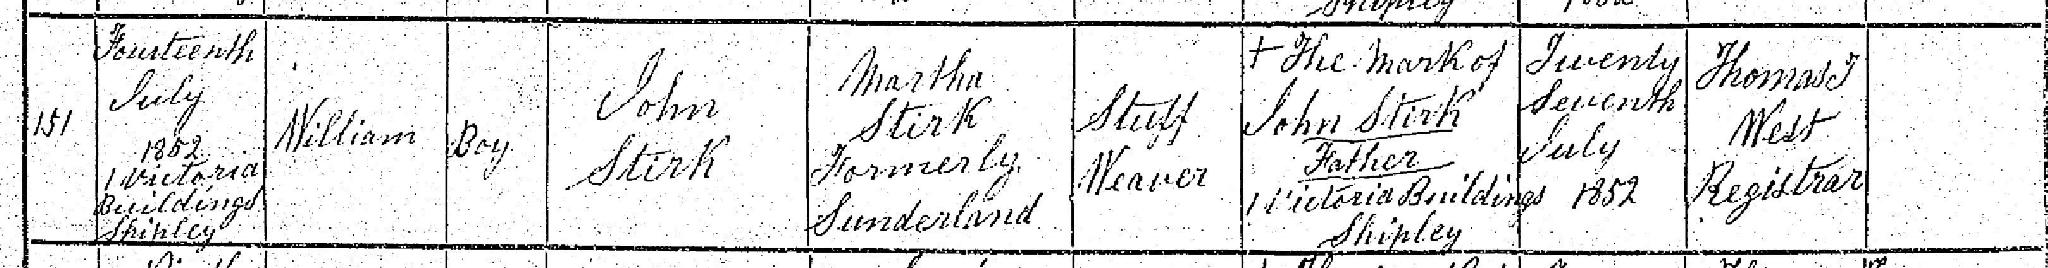 151
Fourteenth
July
1852
1 Victoria
Buildings
Shipley
William
Boy
John
Stirk
Martha
Stirk
Formerly
Sunderland
Stuff
Weaver
+ The Mark of
John Stirk
Father
1 Victoria Buildings
Shipley
Twenty
Seventh
July
1852
Thomas T
West
Registrar